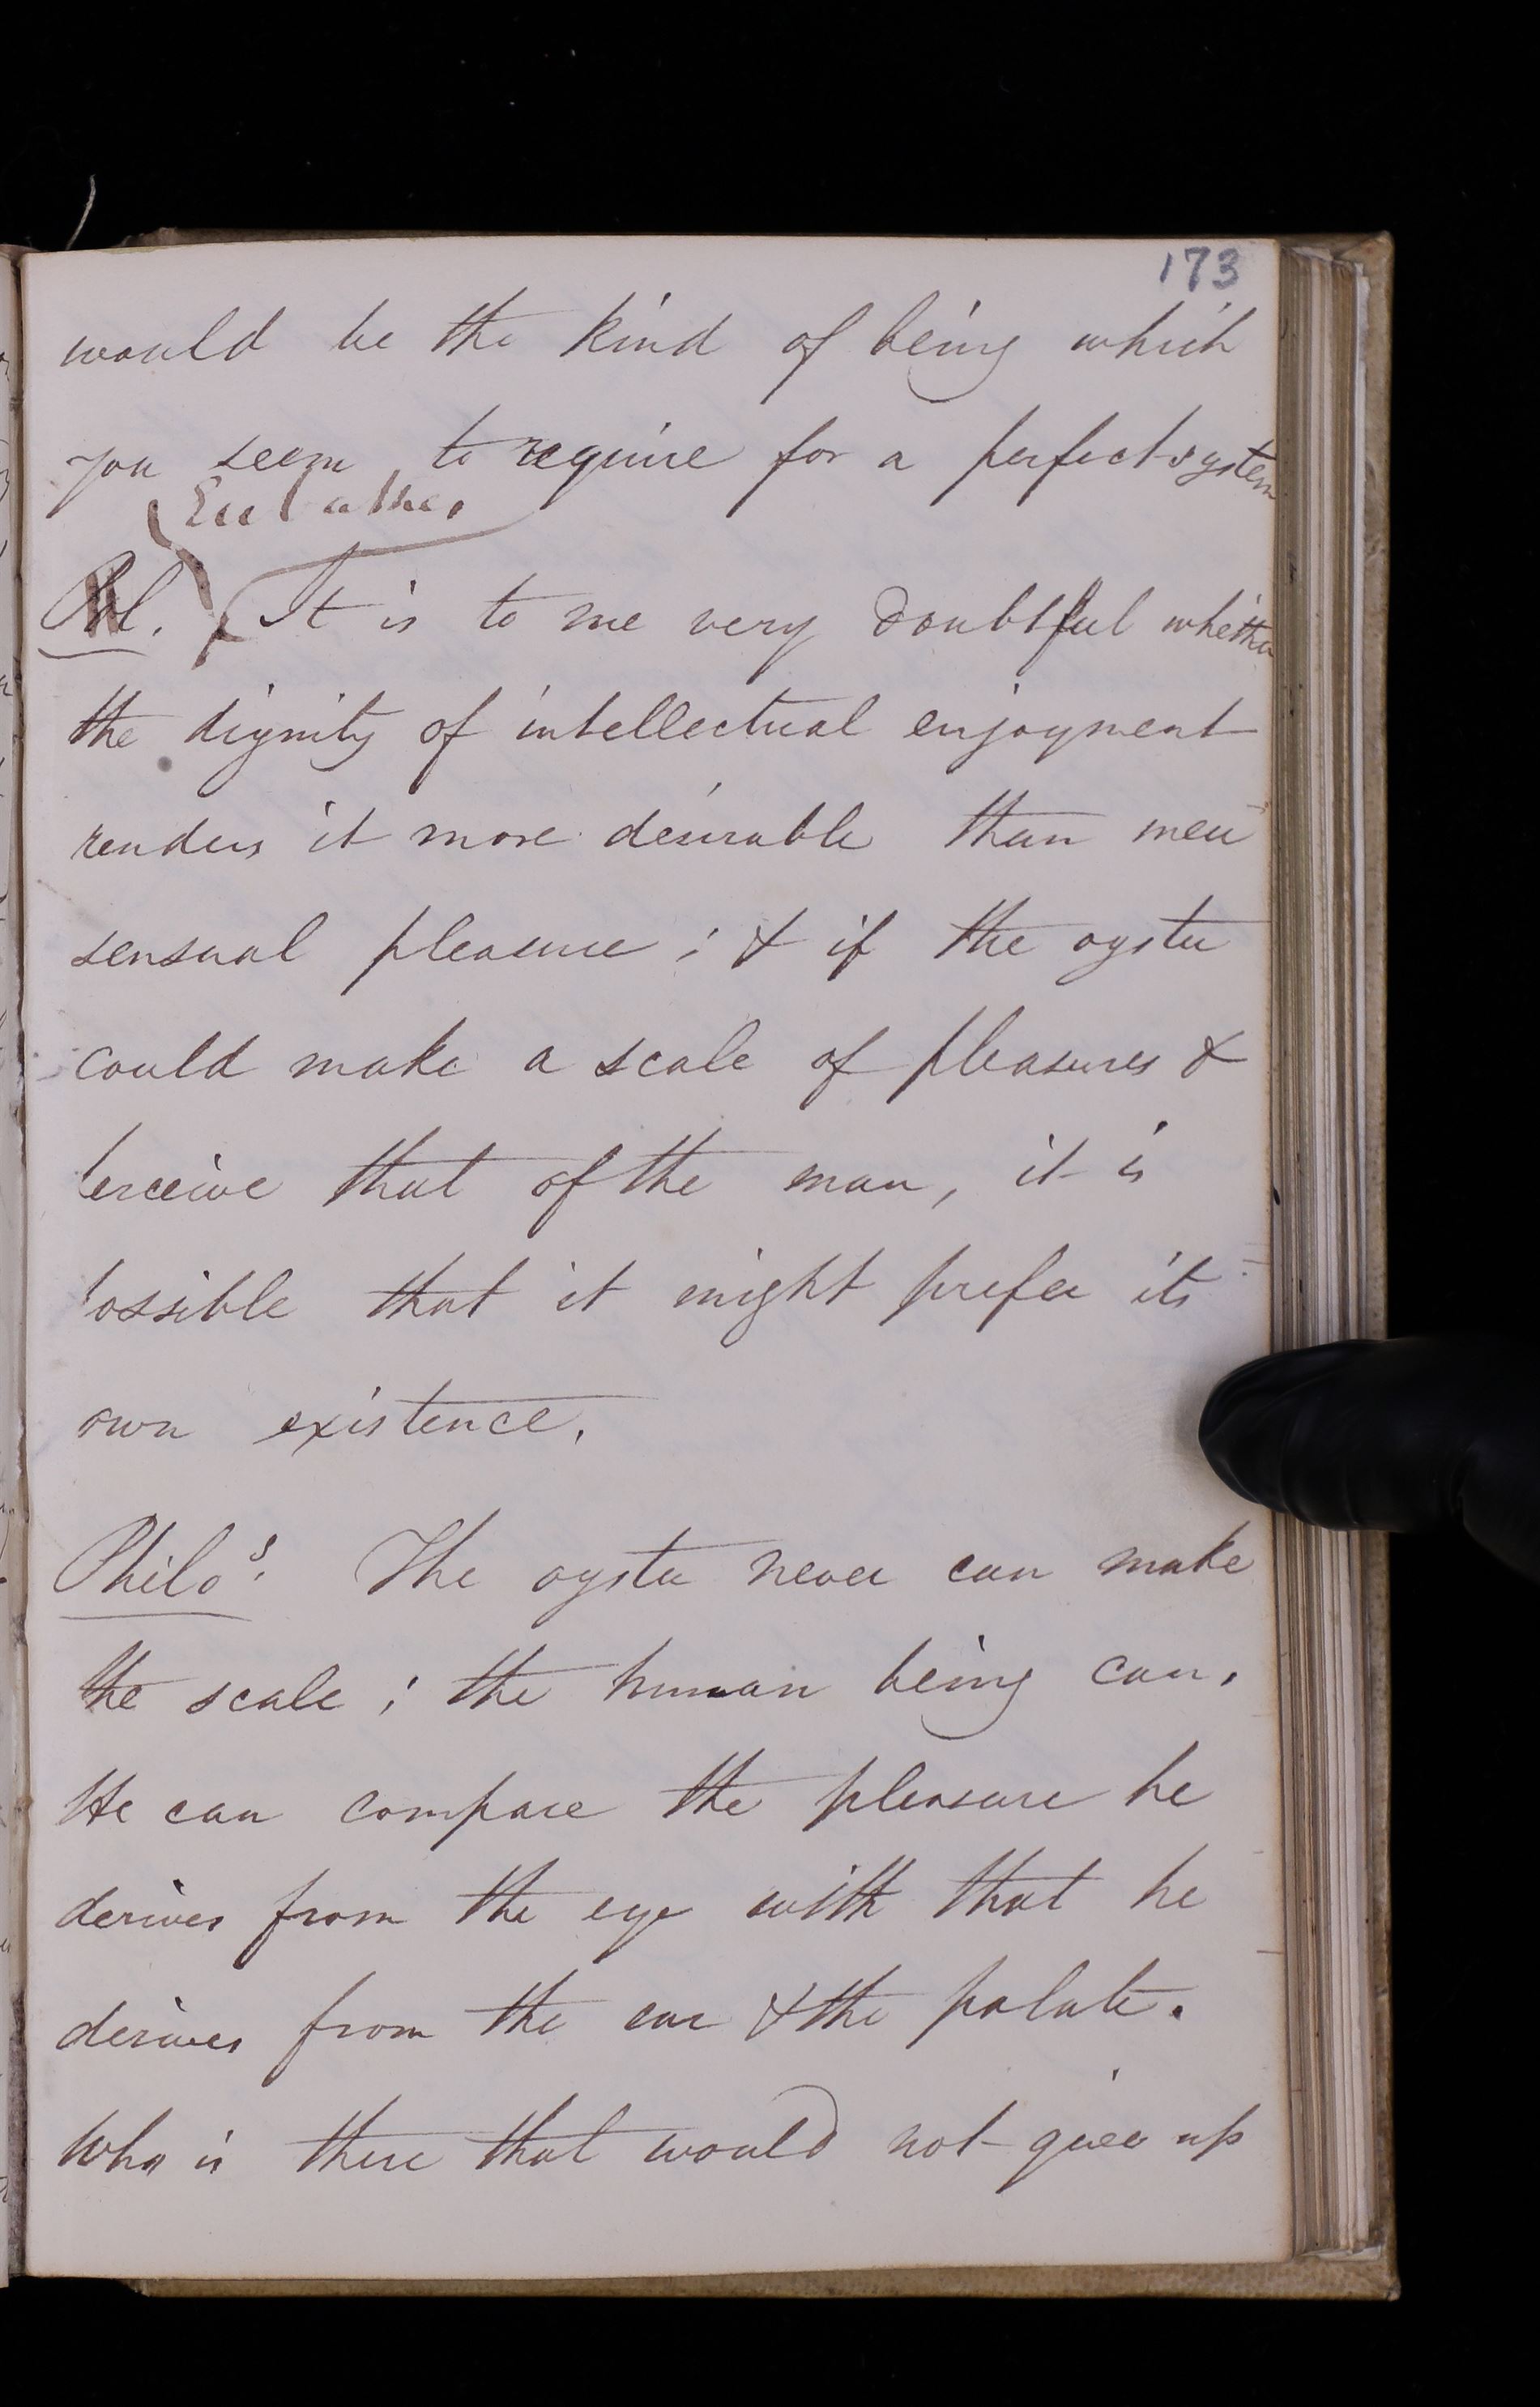 173
would be the kind of being which
you seem to require for a perfect system
Eubathes
Pol. It is to me very doubtful whether
the dignity of intellectual enjoyment
renders it more desirable than mere
sensual pleasure; & if the oyster
could make a scale of pleasures &
perceive that of the man, it is
possible that it might prefer its
own existence.
Philos. The oyster never can make
the scale; the human being can.
He can compare the pleasure he
derives from the eye with that he
derives from the ear & the palate.
Who is there that would not give up